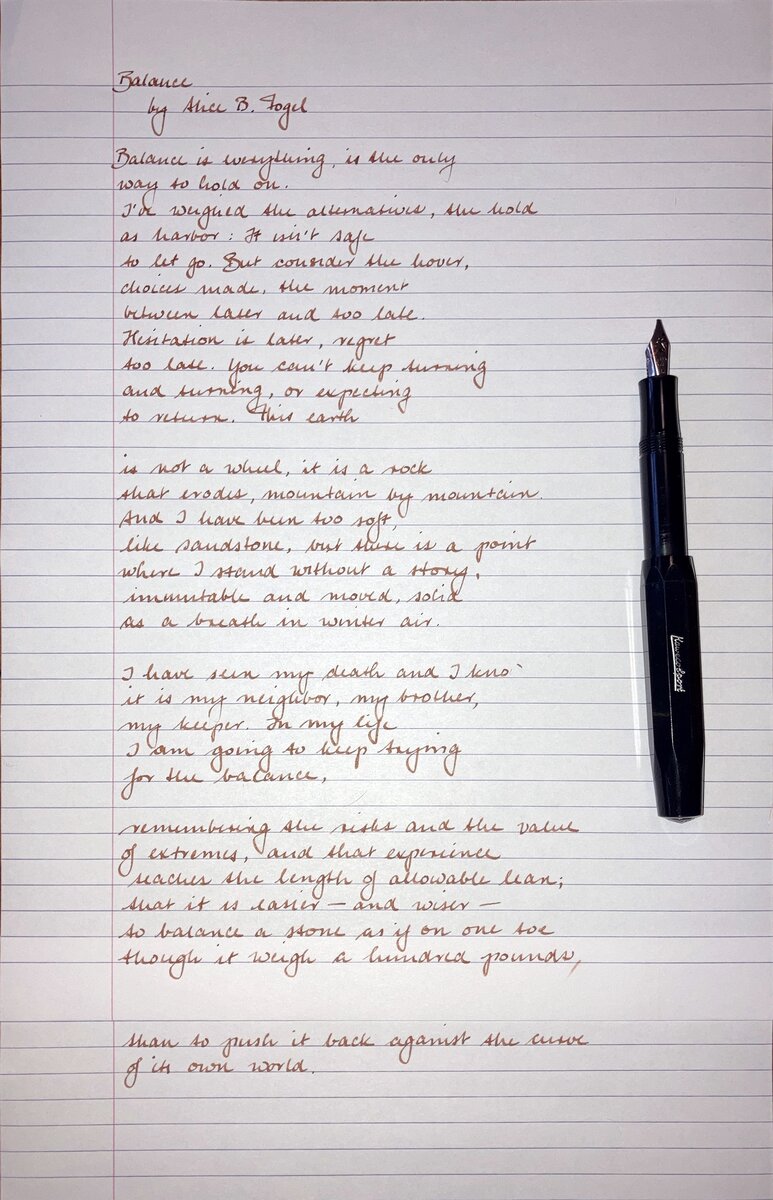 Balance
by Alice B. Fogel
Balance is everything, is the only
way to hold on.
I've weighed the alternatives, the hold
as harbor: It isn't safe
to let go. But consider the hover,
choices made, the moment
between later and too late.
Hesitation is later, regret
too late. You can't keep turning
and turning, or expecting
to return. This earth
is not a wheel, it is a rock
that erodes, mountain by mountain.
And I have been too soft,
like sandstone, but there is a point
where I stand without a story,
immutable and moved, solid
as a breath in winter air.
I have seen my death and I kno
it is my neighbor, my brother,
my keeper. In my life
I am going to keep trying
for the balance,
remembering the risks and the value
of extremes, and that experience
teaches the length of allowable lean;
that it is easier — and wiser —
to balance a stone as if on one toe
though it weigh a hundred pounds,
than to push it back against the curve
of its own world.
Kaweco Sport